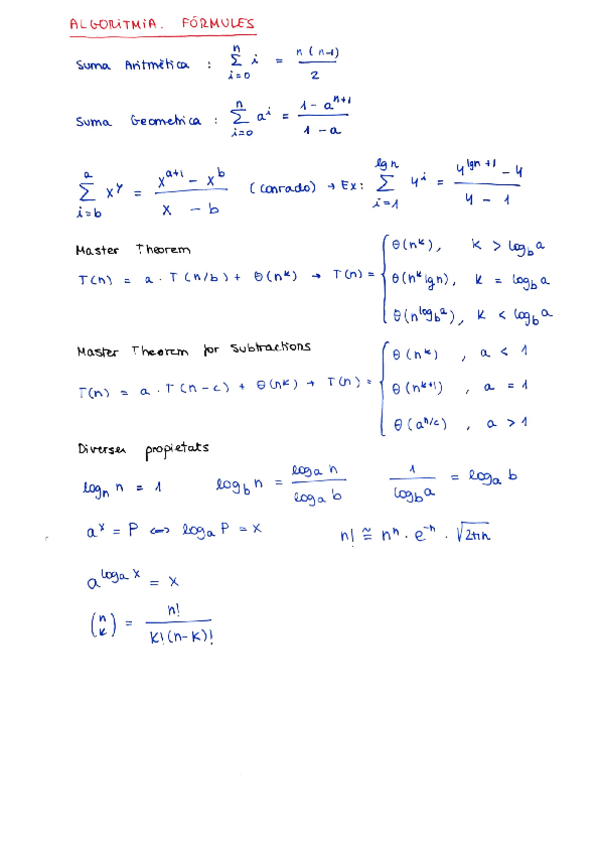 ALGORÍTMIA. FÓRMULES
Suma Aritmètica : n ∑ i=0 i = n(n-1) / 2
Suma Geometrica : n ∑ i=0 aⁱ = 1 - aⁿ⁺¹ / 1 - a
a ∑ i=b xʸ = xᵃ⁺¹ - xᵇ / x - b (conrado) → Ex: lg n ∑ i=1 4ⁱ = 4^(lgn+1) - 4 / 4 - 1
Master Theorem
T(n) = a · T(n/b) + Θ(nᵏ) → T(n) = { Θ(nᵏ), k > log_b a
Θ(nᵏ lgn), k = log_b a
Θ(n^(log_b a)), k < log_b a
Master Theorem for Subtractions
T(n) = a · T(n-c) + Θ(nᵏ) → T(n) = { Θ(nᵏ) , a < 1
Θ(nᵏ⁺¹) , a = 1
Θ(a^(n/c)) , a > 1
Diverses propietats
log_n n = 1 log_b n = log_a n / log_a b 1 / log_b a = log_a b
aˣ = P ⟺ log_a P = x n! ≅ nⁿ · e⁻ⁿ · √2πn
a^(log_a x) = x
(n k) = n! / k!(n-k)!